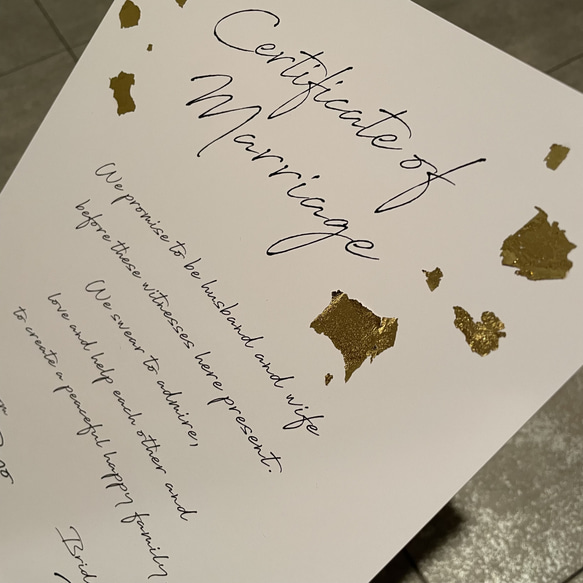 Certificate of
Marriage
We promise to be husband and wife
before these witnesses here present.
We swear to admire,
love and help each other and
to create a peaceful happy family